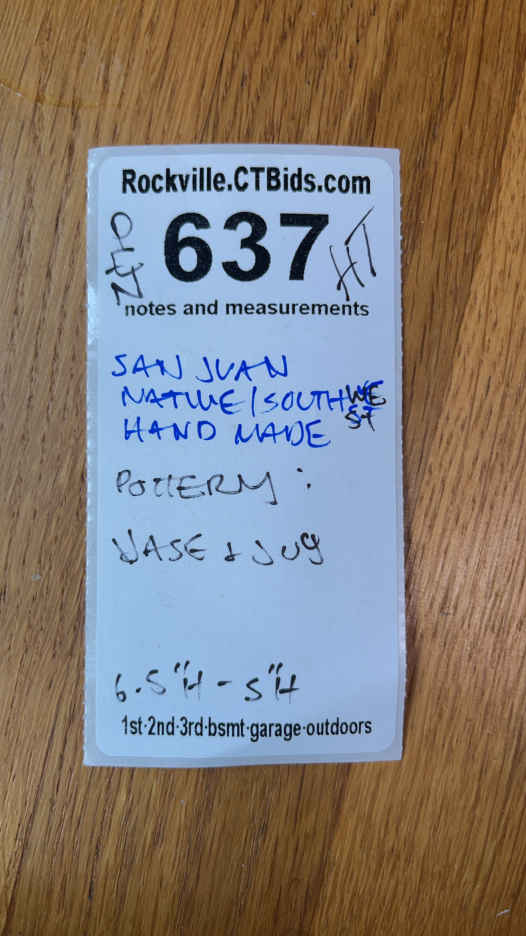 Rockville.CTBids.com
637
HT
notes and measurements
SAN JUAN
NATIVE/SOUTHWE
ST
HAND MADE
POTTERY:
VASE + JUG
6.5"H - 5"H
1st·2nd·3rd·bsmt·garage·outdoors